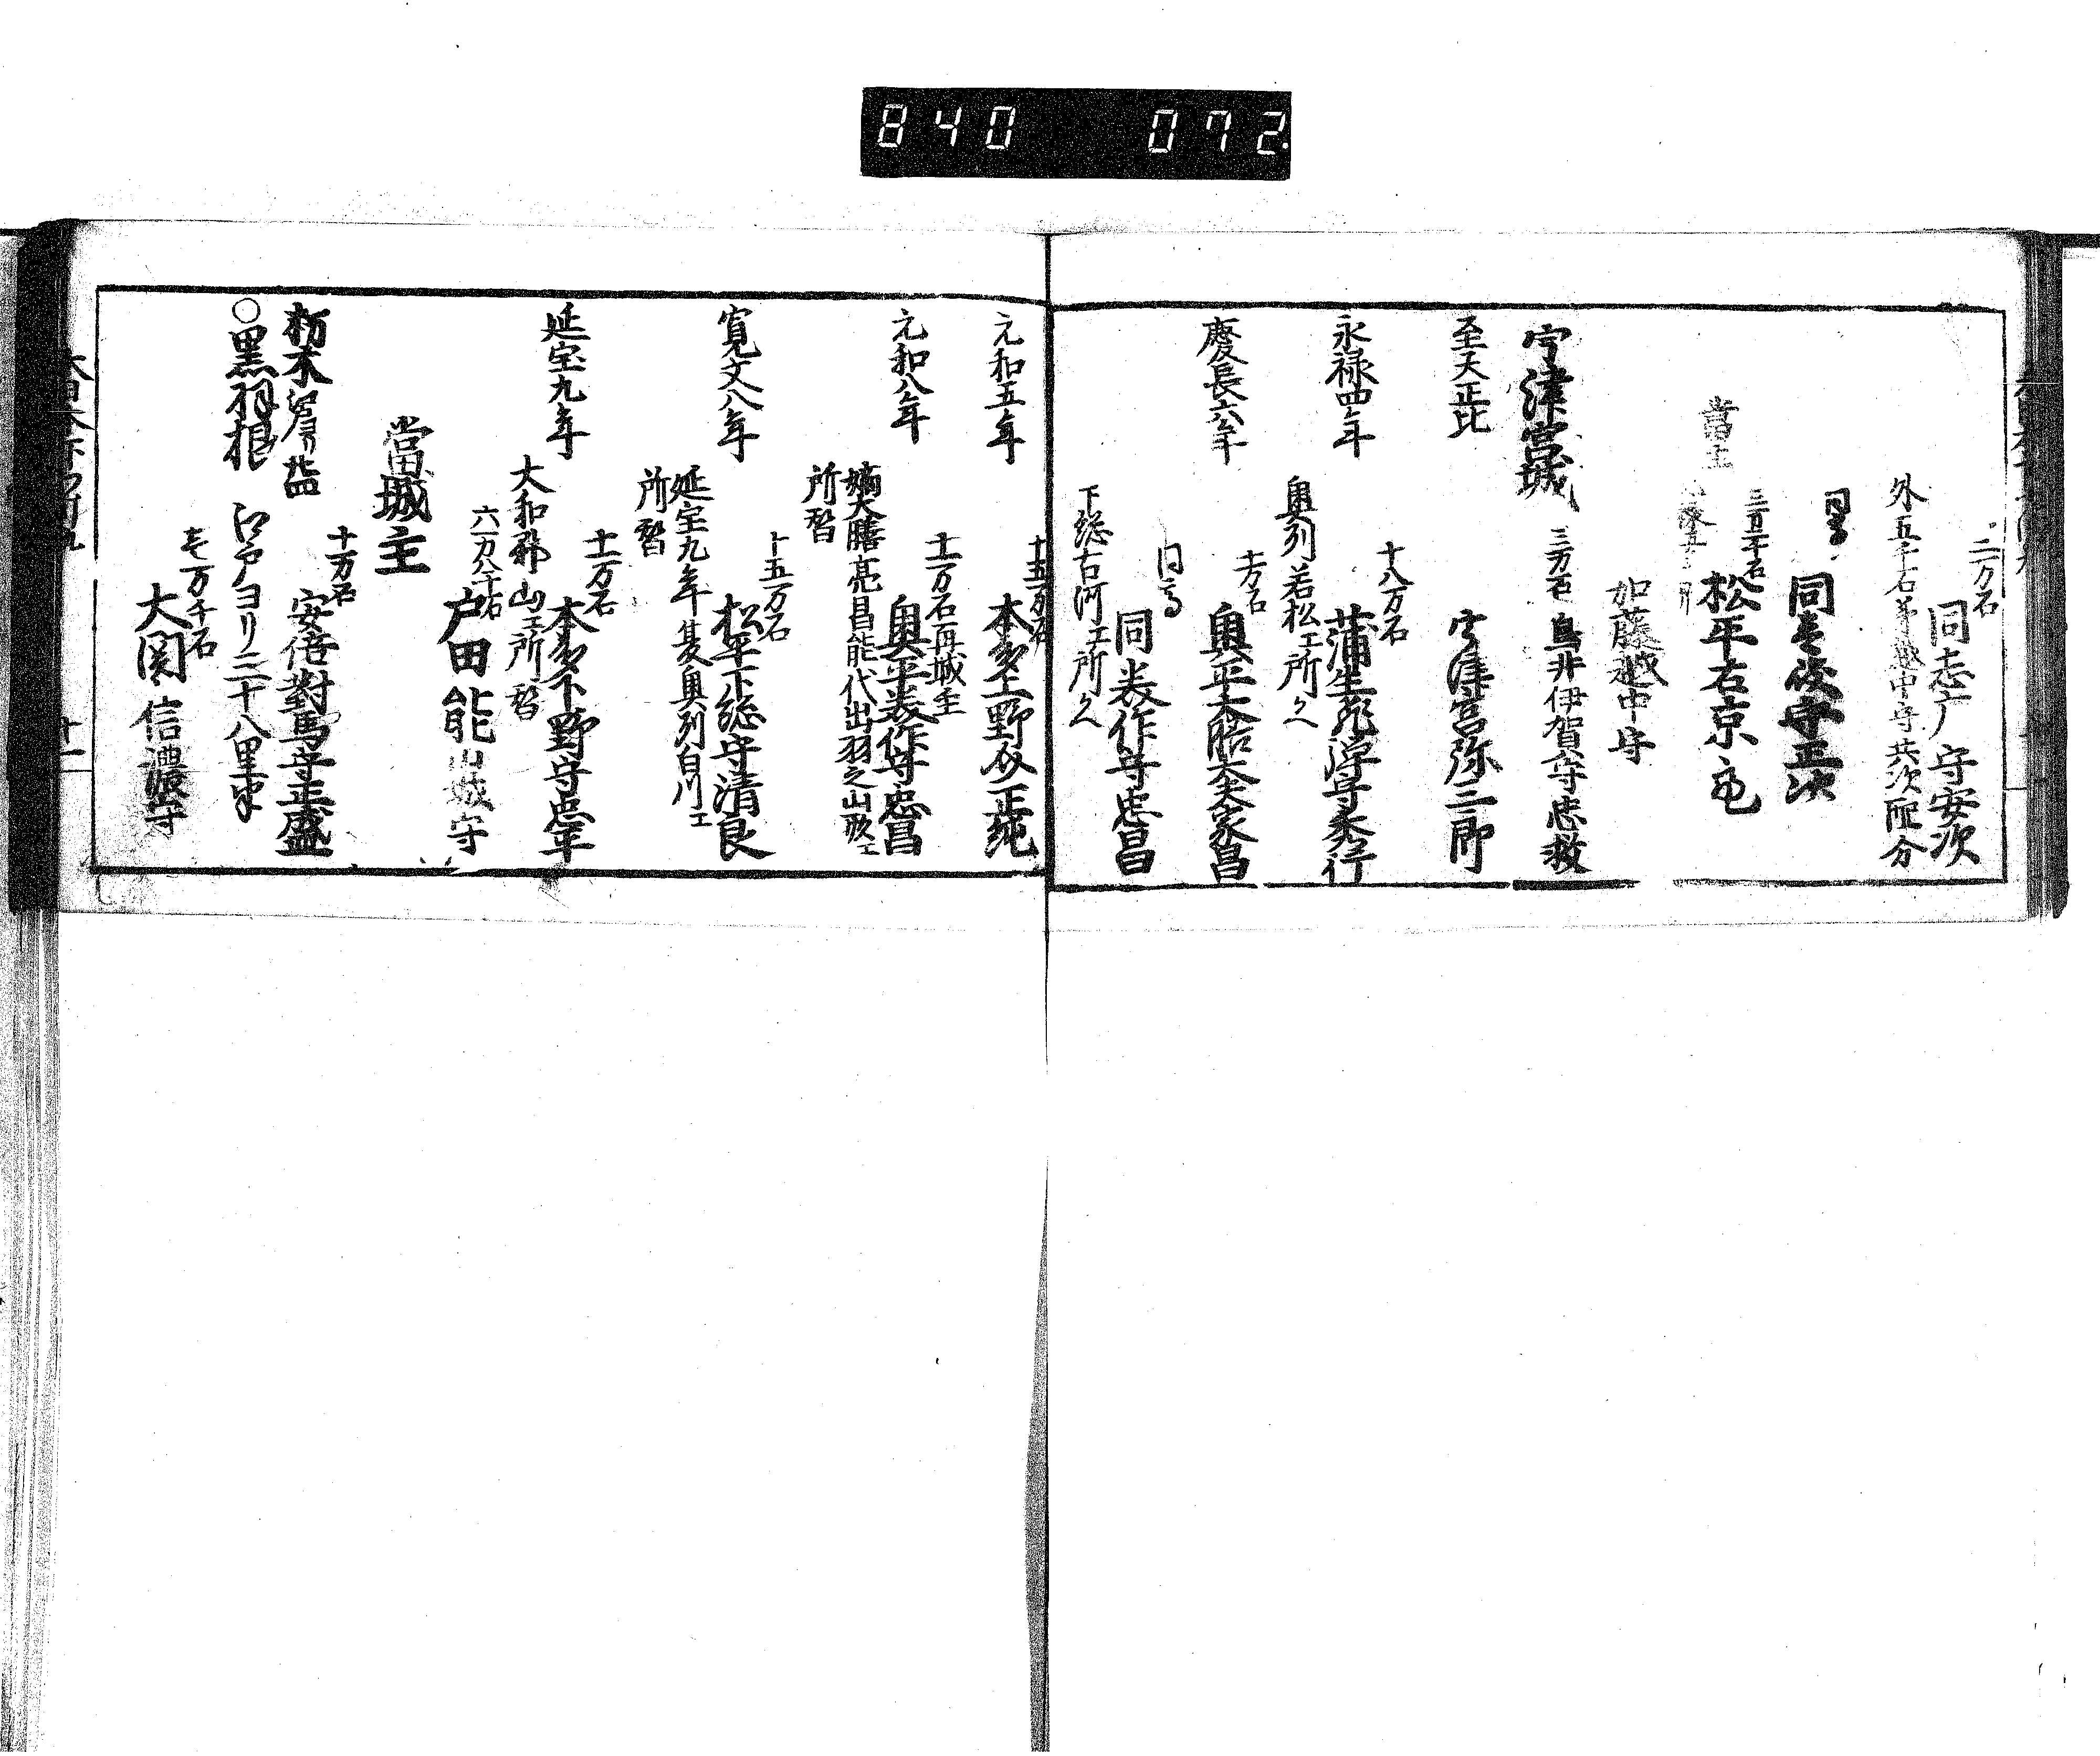 840 072
二万石
同志广守安次
外五千石弟越中守共次配分
同壱岐守正次
三万二千石
當主 松平右京亮
加藤越中守
三万石 鳥井伊賀守忠救
宇津宮城
至天正比 宇津宮弥三郎
十八万石
永禄四年 蒲生飛渟守秀行
奥列若松エ所久
十万石
慶長六年 奥平大膳大夫家昌
同高
同美作守忠昌
下総古河エ所久
十五万石
元和五年 本多上野介正純
十一万石再城主
元和八年 奥平美作守忠昌
嫡大膳亮昌能代出羽之山形エ
所替
十五万石
寛文八年 松平下総守清良
延宝九年夏奥列白川エ
所替
十一万石
延宝九年 本多下野守忠平
大和郡山エ所替
六万八千石
戸田能山城守
當城主
十万石
安倍對馬守正盛
○黒羽根 江戸ヨリ三十八里半
壱万千石
大関信濃守
十一